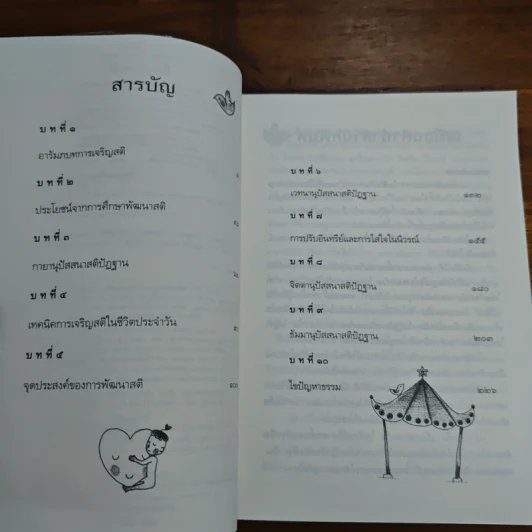 สารบัญ
บทที่ ๑
อารัมภบทการเจริญสติ
บทที่ ๒
ประโยชน์จากการศึกษาพัฒนาสติ
บทที่ ๓
กายานุปัสสนาสติปัฏฐาน
บทที่ ๔
เทคนิคการเจริญสติในชีวิตประจำวัน
บทที่ ๕
จุดประสงค์ของการพัฒนาสติ
บทที่ ๖
เวทนานุปัสสนาสติปัฏฐาน ๑๓๒
บทที่ ๗
การปรับอินทรีย์และการใส่ใจในนิวรณ์ ๑๕๕
บทที่ ๘
จิตตานุปัสสนาสติปัฏฐาน ๑๘๐
บทที่ ๙
ธัมมานุปัสสนาสติปัฏฐาน ๒๐๓
บทที่ ๑๐
ไขปัญหาธรรม ๒๒๖